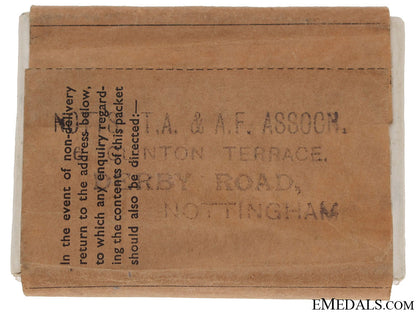 In the event of non-delivery
return to the address below,
to which any enquiry regard-
ing the contents of this packet
should also be directed:—
T.A. & A.F. ASSOCN.
TERRACE.
ROAD,
NOTTINGHAM
EMEDALS.COM